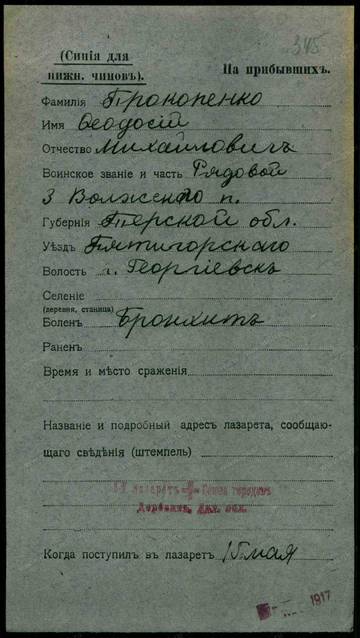 345
(Синія для
нижн. чиновъ).
На прибывшихъ.
Фамилія Прокопенко
Имя Феодосій
Отчество Михайловичъ
Воинское званіе и часть Рядовой
3 п.
Губернія Терской обл.
Уѣздъ Пятигорскаго
Волость г. Георгіевскъ
Селеніе
(деревня, станица)
Боленъ Бронхитъ
Раненъ
Время и мѣсто сраженія
Названіе и подробный адресъ лазарета, сообщаю-
щаго свѣдѣнія (штемпель)
лазаретъ Союза городовъ
Дербентъ, Даг. обл.
Когда поступилъ въ лазаретъ 15 мая
1917